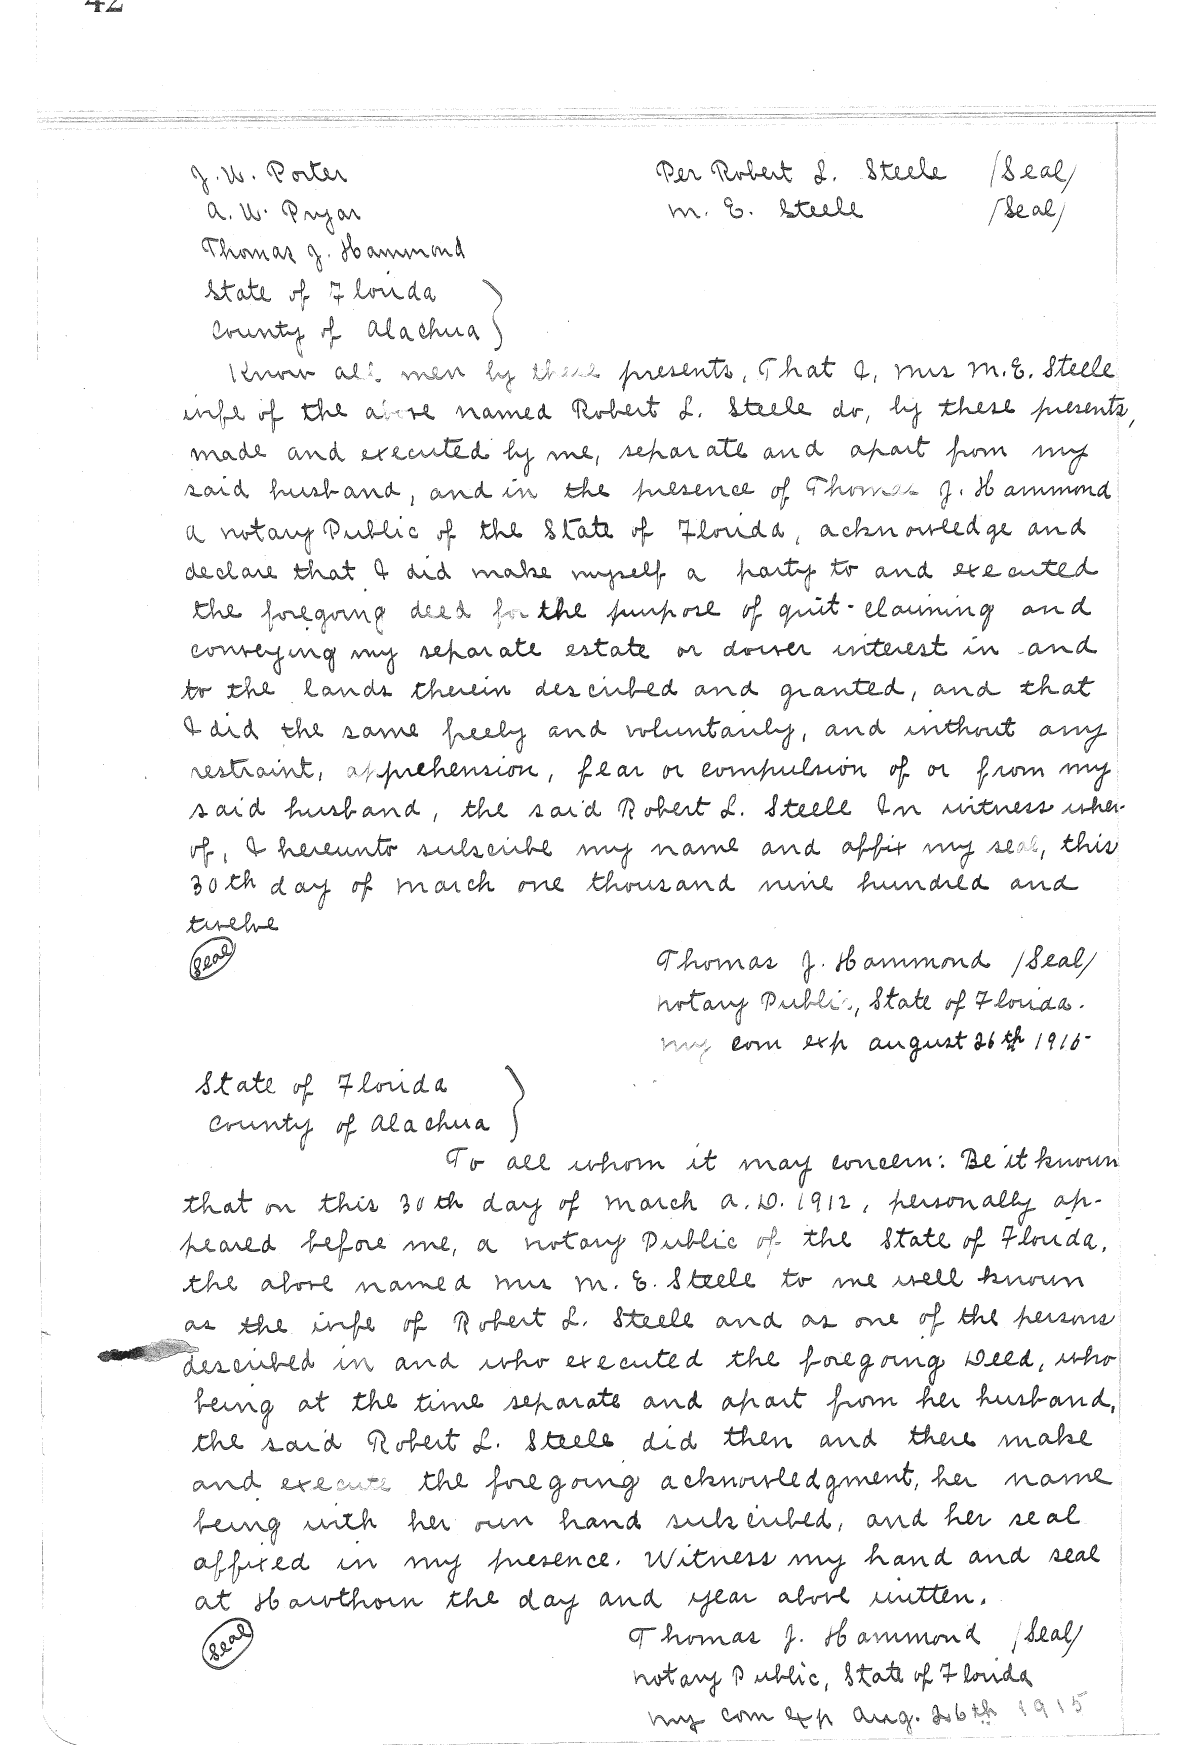 42
J. W. Porter Per Robert L. Steele /Seal/
A. W. Pryor M. E. Steele /Seal/
Thomas J. Hammond
State of Florida
County of Alachua
Know all men by these presents, That I, Mrs M.E. Steele
wife of the above named Robert L. Steele do, by these presents,
made and executed by me, separate and apart from my
said husband, and in the presence of Thomas J. Hammond
a notary Public of the State of Florida, acknowledge and
declare that I did make myself a party to and executed
the foregoing deed for the purpose of quit-claiming and
conveying my separate estate or dower interest in and
to the lands therein described and granted, and that
I did the same freely and voluntarily, and without any
restraint, apprehension, fear or compulsion of or from my
said husband, the said Robert L. Steele In witness wher-
of, I hereunto subscribe my name and affix my seal, this
30th day of March one thousand nine hundred and
twelve
Seal
Thomas J. Hammond /Seal/
Notary Public, State of Florida.
my com exp august 26th 1915
State of Florida
County of Alachua
To all whom it may concern: Be it known
that on this 30th day of March A.D. 1912, personally ap-
peared before me, a notary Public of the State of Florida,
the above named Mrs M. E. Steele to me well known
as the wife of Robert L. Steele and as one of the persons
described in and who executed the foregoing Deed, who
being at the time separate and apart from her husband,
the said Robert L. Steele did then and there make
and execute the foregoing acknowledgment, her name
being with her own hand subscribed, and her seal
affixed in my presence. Witness my hand and seal
at Hawthorn the day and year above written.
Seal
Thomas J. Hammond /Seal/
Notary Public, State of Florida
My com exp Aug. 26th 1915